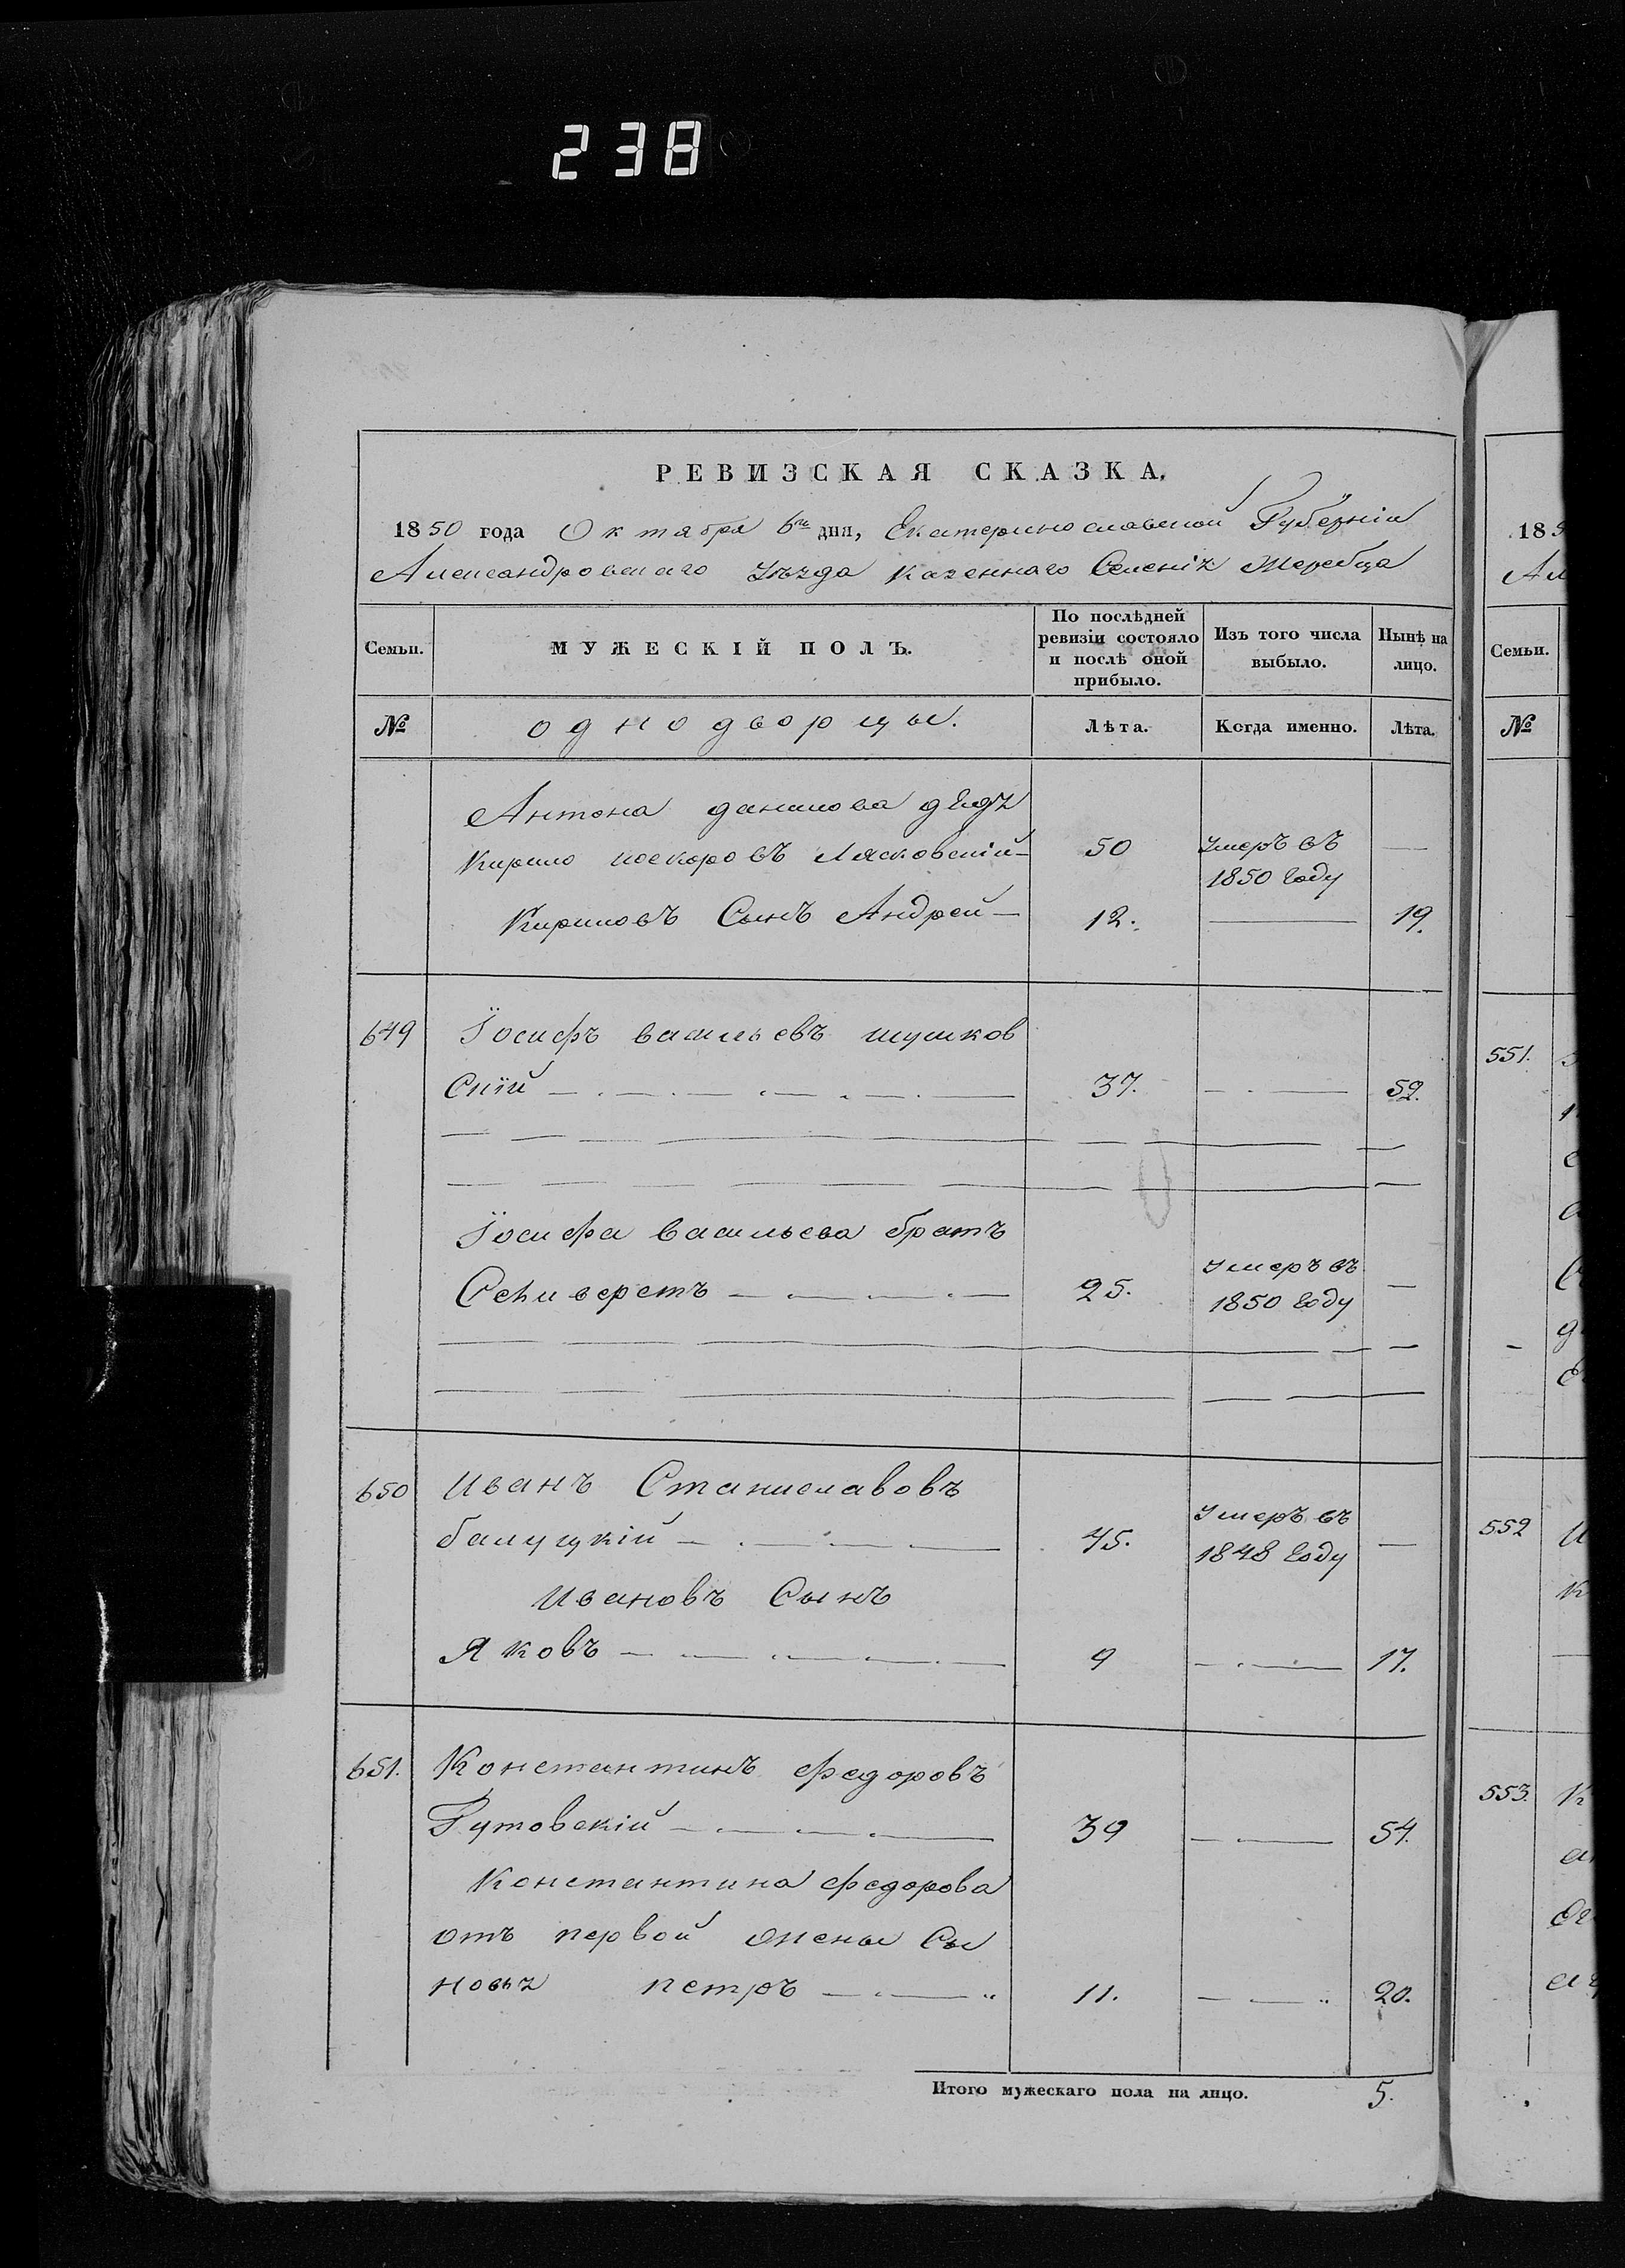 238
РЕВИЗСКАЯ СКАЗКА.
1850 года Октября 6го дня, Екатеринославской Губерніи
Александровскаго Уѣзда казеннаго Селенія Жеребца
Семьи.
МУЖЕСКІЙ ПОЛЪ.
По послѣдней ревизіи состояло и послѣ оной прибыло.
Изъ того числа выбыло.
Нынѣ на лицо.
№ однодворцы. Лѣта. Когда именно. Лѣта.
Антона данилова дядя
Кирило Лясковскій 50 Умеръ въ 1850 году —
Кириловъ Сынъ Андрей — 12. — 19.
649 Іосифъ васильевъ шушков
скій — 37. — 52.
Іосифа васильева братъ
Селиверстъ — 25. Умеръ въ 1850 году —
650 Иванъ Станиславовъ
балуцкій — 45. Умеръ въ 1848 году —
Ивановъ Сынъ
Яковъ — 9 — 17.
651. Константинъ федоровъ
Гутовскій — 39 — 54.
Константина федорова
отъ первой жены Сы
новья петръ — 11. — 20.
Итого мужескаго пола на лицо. 5.
185
Ал
Семьи.
№
551.
552
553.